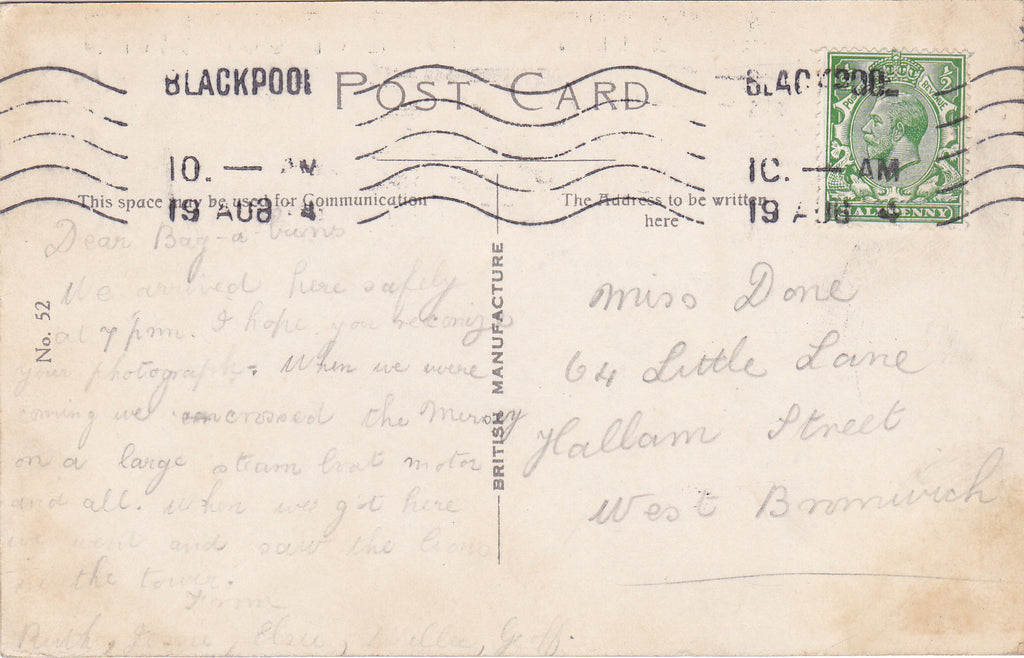 BLACKPOOL
POST CARD
BLACKPOOL
10. — AM
10. — AM
19 AUG 4
19 AUG 4
HALFPENNY
This space may be used for Communication
The Address to be written
here
No. 52
BRITISH MANUFACTURE
Dear Bag-a-
We arrived here safely
at 7 pm. I hope you reconize
your photograph. When we were
coming we crossed the Mersey
on a large steam boat motor
and all. When we got here
we went and saw the lions
in the tower.
From
Ruth, Elsie, Geoff.
Miss Done
64 Little Lane
Hallam Street
West Bromwich